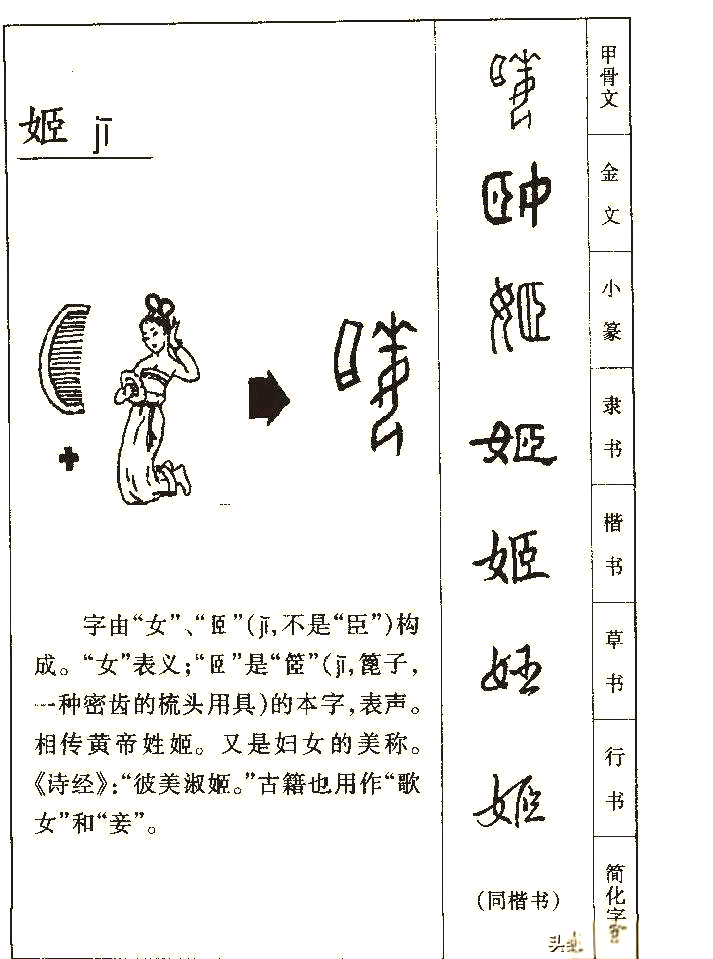 姬 jī
字由“女”、“𦣞”(jī,不是“臣”)构
成。“女”表义;“𦣞”是“篦”(jī,篦子,
一种密齿的梳头用具)的本字,表声。
相传黄帝姓姬。又是妇女的美称。
《诗经》:“彼美淑姬。”古籍也用作“歌
女”和“妾”。
甲骨文
金文
小篆
姬
隶书
姬
楷书
姬
草书
行书
姬
(同楷书)
简化字
头